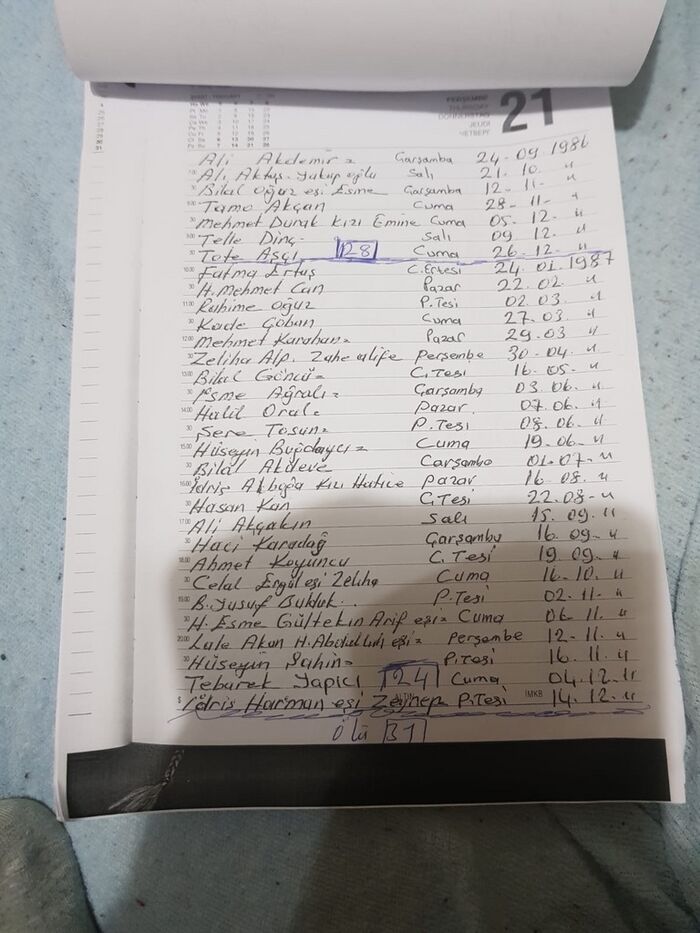 PERŞEMBE
THURSDAY
DONNERSTAG
JEUDI
ЧЕТВЕРГ
21
Ali Akdemir = Çarşamba 24-09 1986
Ali Aktuş. Yakup oğlu Salı 21. 10. "
Bilal Oğuz eşi Esme Çarşamba 12-11- "
Tamo Akçan Cuma 28-11- "
Mehmet Durak Kızı Emine Cuma 05. 12- "
Telle Dinç- Salı 09 12- "
Tote Aşçı 28 Cuma 26. 12- "
Fatma Ertuş C. Ertesi 24 01. 1987
H. Mehmet Can Pazar 22. 02 "
Rahime Oğuz P. Tesi 02 03. "
Kade Çoban Cuma 27. 03 - "
Mehmet Karahan = Pazar 29. 03 "
Zeliha Alp. Perşembe 30-04. "
Bilal Göncü = C. Tesi 16. 05- "
Esme Ağralı = Çarşamba 03. 06. "
Halil Oral = Pazar. 07. 06. "
Şere Tosun = P. Tesi 08. 06. "
Hüseyin Buğdaycı = Cuma 19. 06- "
Bilal Akdeve Çarşamba 01-07- "
İdris Kızı Hatice Pazar 16. 08. "
Hasan Kan C. Tesi 22. 08- "
Ali Akçakın Salı 15. 09. "
Haci Karadağ Çarşamba 16. 09- "
Ahmet Koyuncu C. Tesi 19. 09- "
Celal Ergül eşi Zeliha Cuma 16- 10. "
B. Yusuf P. Tesi 02. 11- "
H. Esme Gültekin Arif eşi = Cuma 06- 11. "
Lale Akan H. Abdullah eşi = Perşembe 12- 11. "
Hüseyin Şahin = P. Tesi 16. 11. "
Tebarek Yapıcı 24 Cuma 04. 12. "
İdris Harman eşi Zeynep P. Tesi İMKB 14. 12. "
Ölü 31